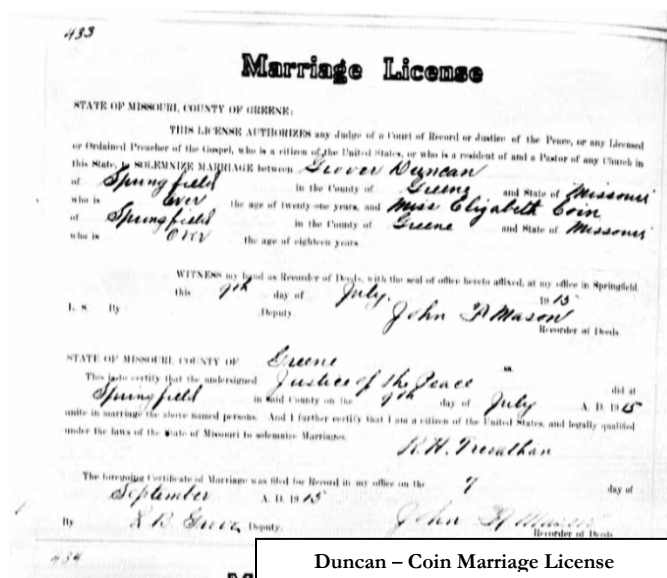 433
Marriage License
STATE OF MISSOURI, COUNTY OF GREENE:
THIS LICENSE AUTHORIZES any Judge of a Court of Record or Justice of the Peace, or any Licensed
or Ordained Preacher of the Gospel, who is a citizen of the United States, or who is a resident of and a Pastor of any Church in
this State, to SOLEMNIZE MARRIAGE between Grover Duncan
of Springfield in the County of Greene and State of Missouri
who is Over the age of twenty-one years, and Miss Elizabeth Coin
of Springfield in the County of Greene and State of Missouri
who is Over the age of eighteen years
WITNESS my hand as Recorder of Deeds, with the seal of office hereto affixed, at my office in Springfield
this 9th day of July, 1915
L. S. By Deputy. John Mason
Recorder of Deeds.
STATE OF MISSOURI, COUNTY OF Greene ss.
This is to certify that the undersigned Justice of the Peace did at
Springfield in said County on the 9th day of July A. D. 1915
unite in marriage the above named persons. And I further certify that I am a citizen of the United States, and legally qualified
under the laws of the State of Missouri to solemnize Marriages.
R. H. Trevathan
The foregoing Certificate of Marriage was filed for Record in my office on the 7 day of
September A. D. 1915
By Deputy. John Mason
Recorder of Deeds
434
Duncan – Coin Marriage License